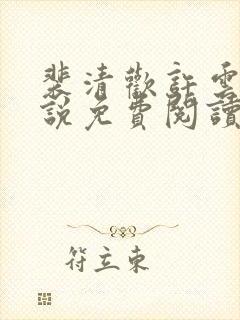 裴清歡許雲
說免費閱讀
符立東